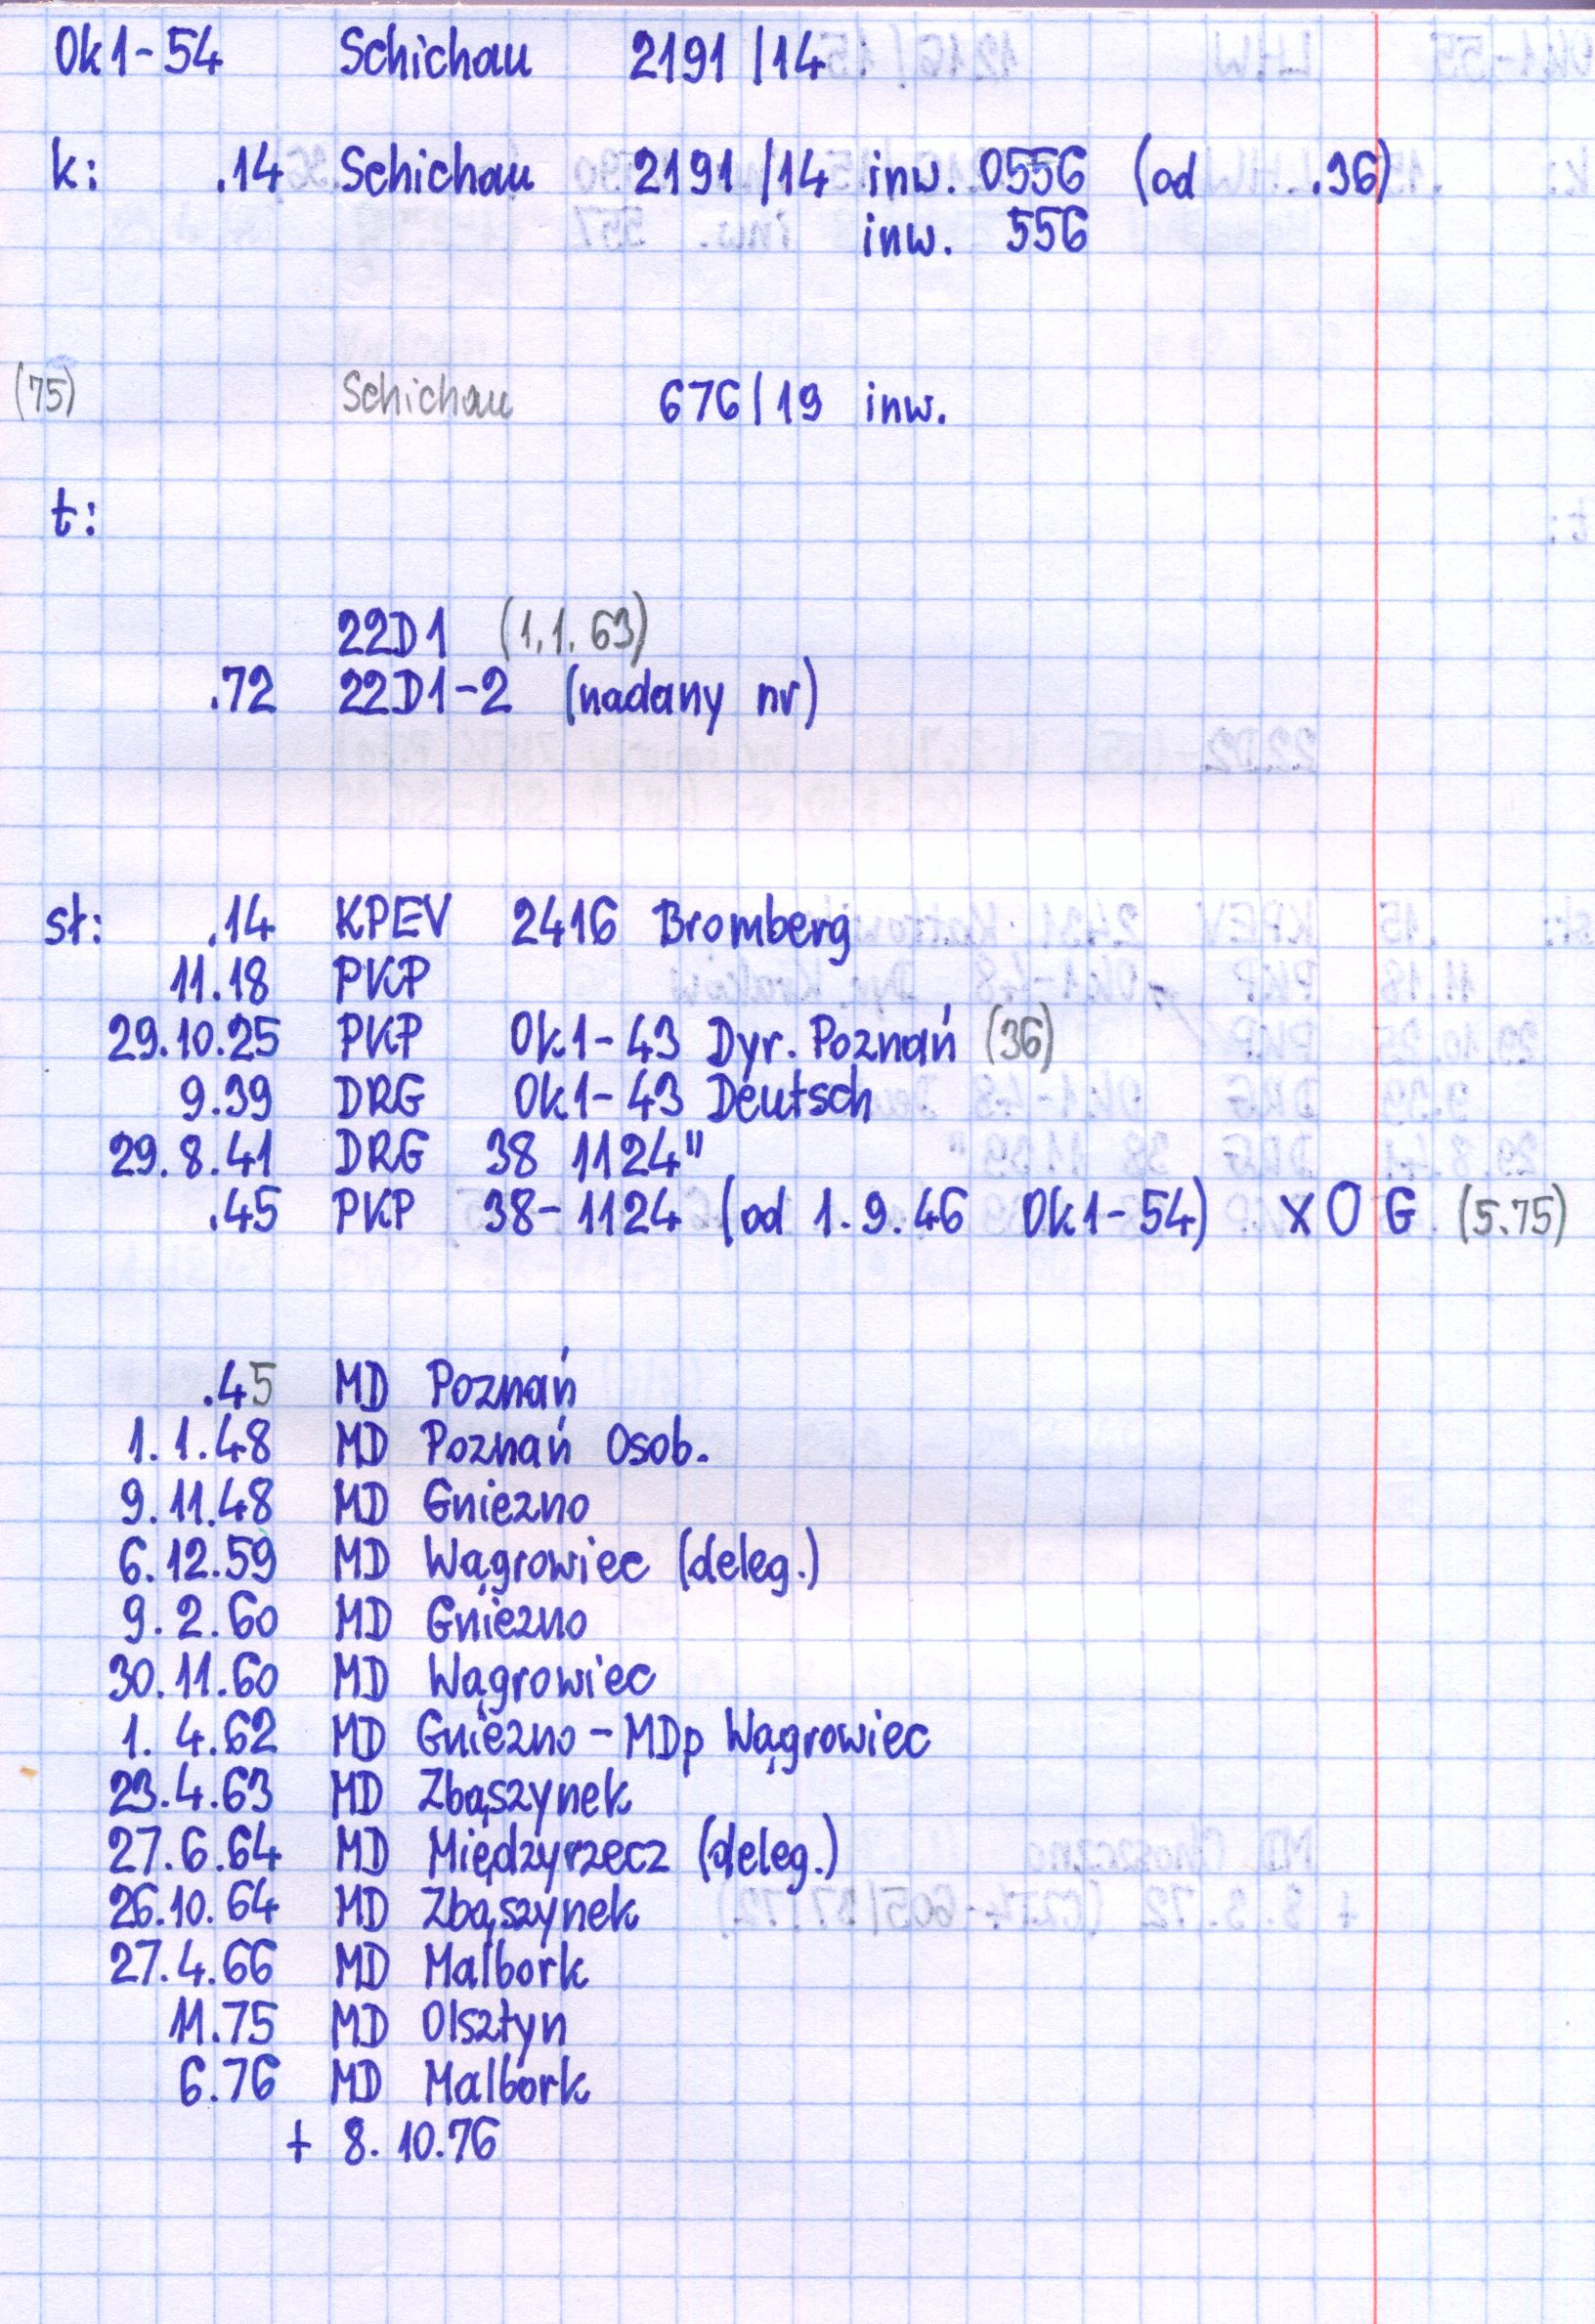 Ok1-54 Schichau 2191/14
k: .14 Schichau 2191/14 inw. 0556 (od .36)
inw. 556
(75) Schichau 676/19 inw.
t:
22D1 (1.1.63)
.72 22D1-2 (nadany nr)
sł: .14 KPEV 2416 Bromberg
11.18 PKP
29.10.25 PKP Ok1-43 Dyr. Poznań (36)
9.39 DRG Ok1-43 Deutsch
29.8.41 DRG 38 1124"
.45 PKP 38-1124 (od 1.9.46 Ok1-54) x O G (5.75)
.45 MD Poznań
1.1.48 MD Poznań Osob.
9.11.48 MD Gniezno
6.12.59 MD Wągrowiec (deleg.)
9.2.60 MD Gniezno
30.11.60 MD Wągrowiec
1.4.62 MD Gniezno - MDp Wągrowiec
23.4.63 MD Zbąszynek
27.6.64 MD Międzyrzecz (deleg.)
26.10.64 MD Zbąszynek
27.4.66 MD Malbork
11.75 MD Olsztyn
6.76 MD Malbork
+ 8.10.76